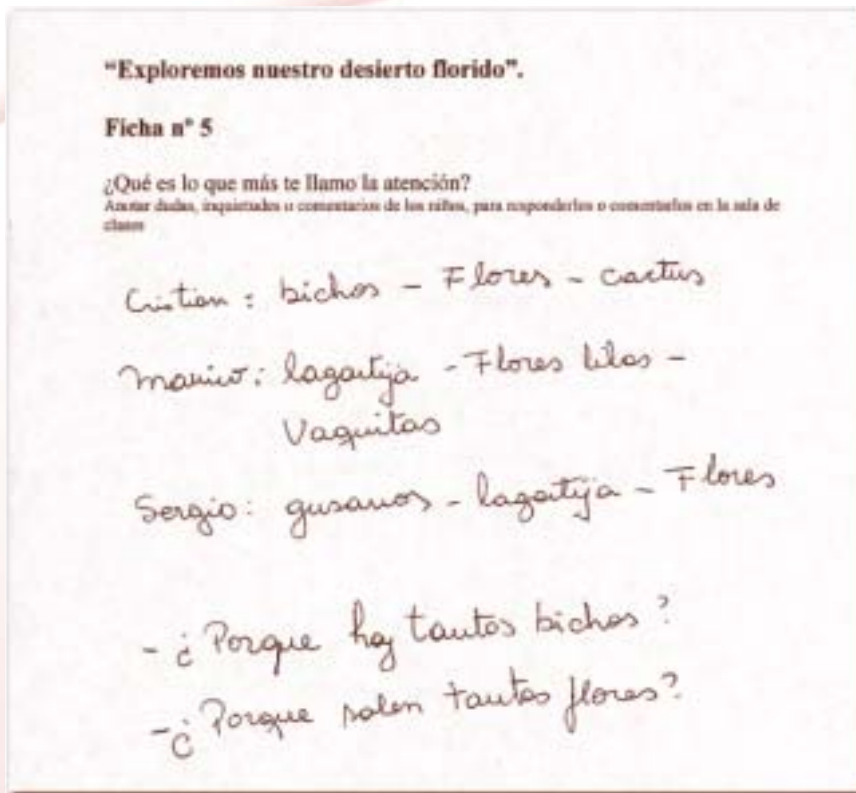 “Exploremos nuestro desierto florido”.
Ficha nº 5
¿Qué es lo que más te llamo la atención?
Anotar dudas, inquietudes o comentarios de los niños, para responderlos o comentarlos en la sala de
clases
Cristian : bichos - Flores - cactus
Mauricio: lagartija - Flores lilas -
Vaquitas
Sergio: gusanos - lagartija - Flores
- ¿Porque hay tantos bichos?
- ¿Porque salen tantas flores?